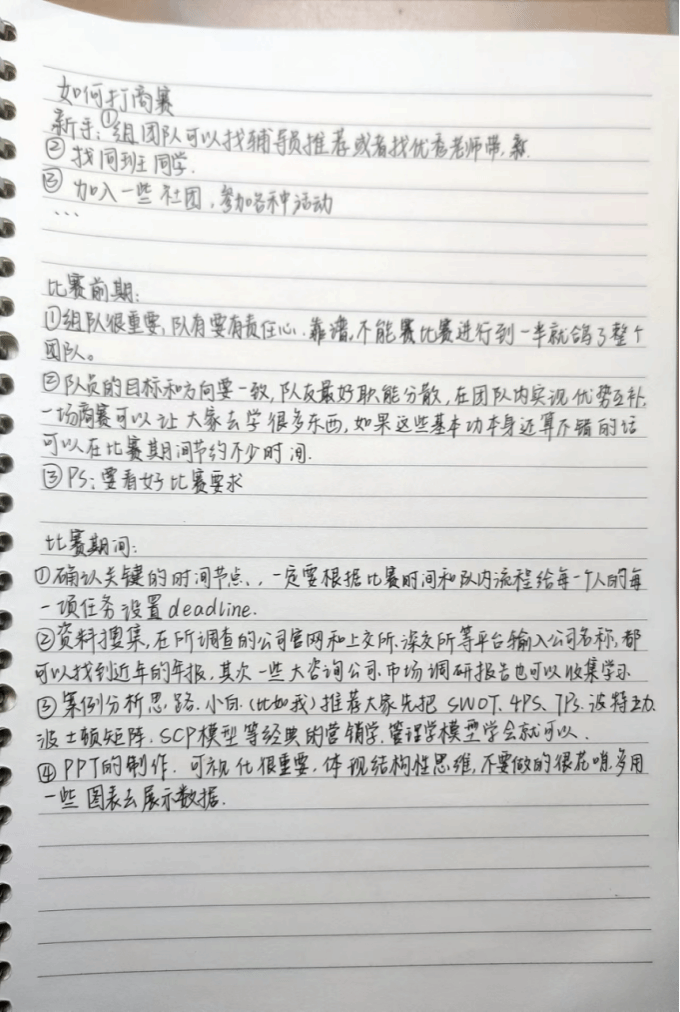 如何打商赛
新手:①组团队可以找辅导员推荐或者找优秀老师带,
②找同班同学.
③加入一些社团,参加各种活动
...
比赛前期:
①组队很重要,队有要有责任心.靠谱,不能赛比赛进行到一半就鸽了整个
团队。
②队员的目标和方向要一致,队友最好职能分散,在团队内实现优势互补,
一场商赛可以让大家去学很多东西,如果这些基本功本身还算不错的话
可以在比赛期间节约不少时间.
③PS:要看好比赛要求
比赛期间:
①确认关键的时间节点、,一定要根据比赛时间和队内流程给每一个人的每
一项任务设置deadline.
②资料搜集,在所调查的公司官网和上交所.深交所等平台输入公司名称,都
可以找到近年的年报,其次一些大咨询公司.市场调研报告也可以收集学习.
③案例分析思路.小白.(比如我)推荐大家先把SWOT.4PS、7Ps.波特五力.
波士顿矩阵.SCP模型等经典的营销学.管理学模型学会就可以.
④PPT的制作.可视化很重要,体现结构性思维,不要做的很花哨.多用
一些图表去展示数据.